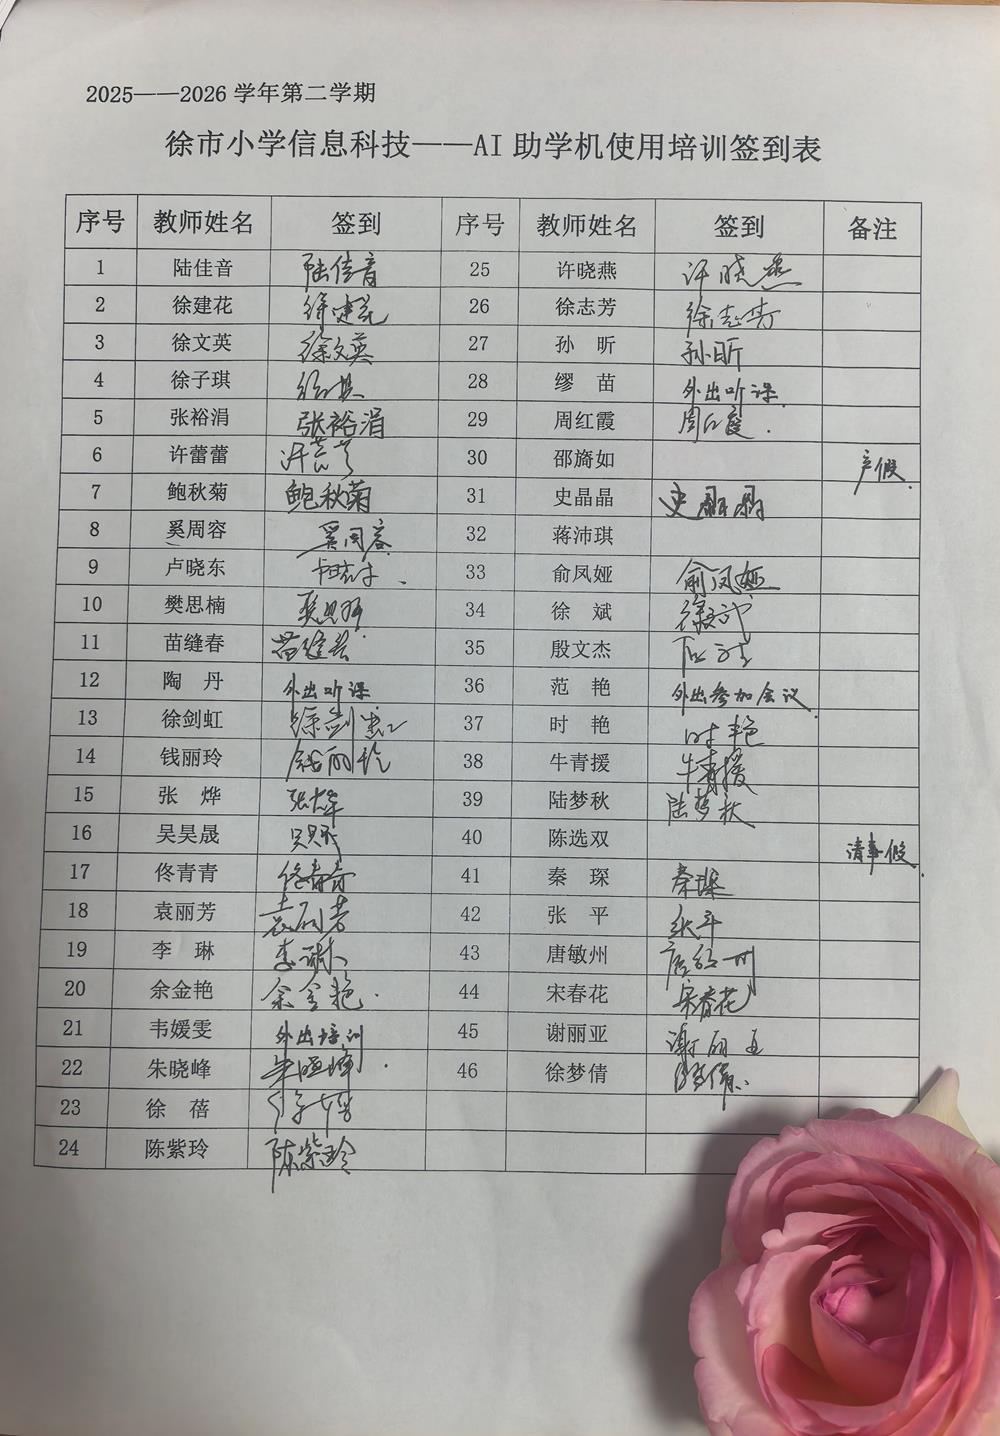 2025——2026 学年第二学期
徐市小学信息科技——AI 助学机使用培训签到表
序号 教师姓名 签到 序号 教师姓名 签到 备注
1 陆佳音 陆佳音 25 许晓燕 许晓燕
2 徐建花 徐建花 26 徐志芳 徐志芳
3 徐文英 徐文英 27 孙 昕 孙昕
4 徐子琪 28 缪 苗 外出听课.
5 张裕涓 张裕涓 29 周红霞 周红霞.
6 许蕾蕾 30 邵旖如 产假.
7 鲍秋菊 鲍秋菊 31 史晶晶 史晶晶
8 奚周容 奚周容 32 蒋沛琪
9 卢晓东 33 俞凤娅 俞凤娅
10 樊思楠 34 徐 斌 徐斌
11 苗缝春 苗缝春 35 殷文杰
12 陶 丹 外出听课 36 范 艳 外出参加会议.
13 徐剑虹 徐剑虹 37 时 艳 时艳
14 钱丽玲 钱丽玲 38 牛青援 牛青援
15 张 烨 张烨 39 陆梦秋 陆梦秋
16 吴昊晟 40 陈选双 请事假.
17 佟青青 佟青青 41 秦 琛 秦琛
18 袁丽芳 袁丽芳 42 张 平 张平
19 李 琳 李琳 43 唐敏州 唐敏州
20 余金艳 余金艳. 44 宋春花 宋春花
21 韦媛雯 外出培训 45 谢丽亚 谢丽亚
22 朱晓峰 朱晓峰. 46 徐梦倩
23 徐 蓓
24 陈紫玲 陈紫玲